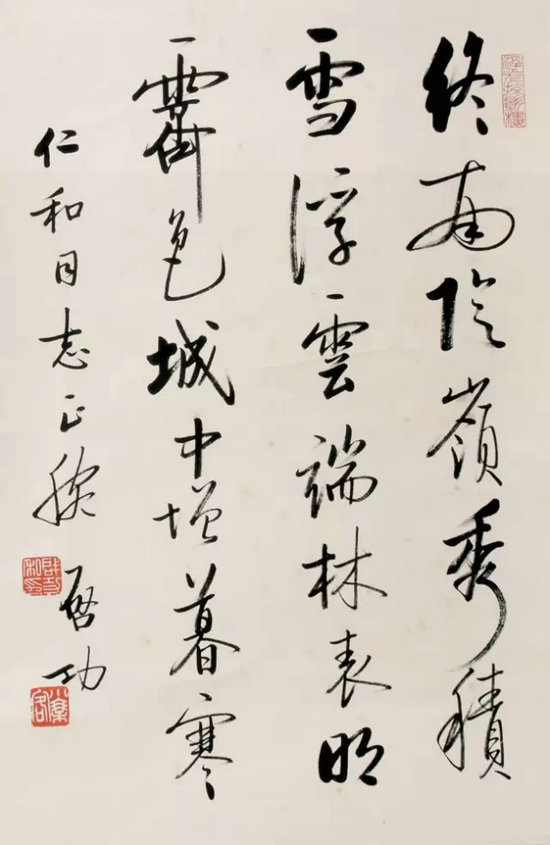 終南陰嶺秀積
雪浮雲端林表明
霽色城中增暮寒
仁和同志正腕
啟功